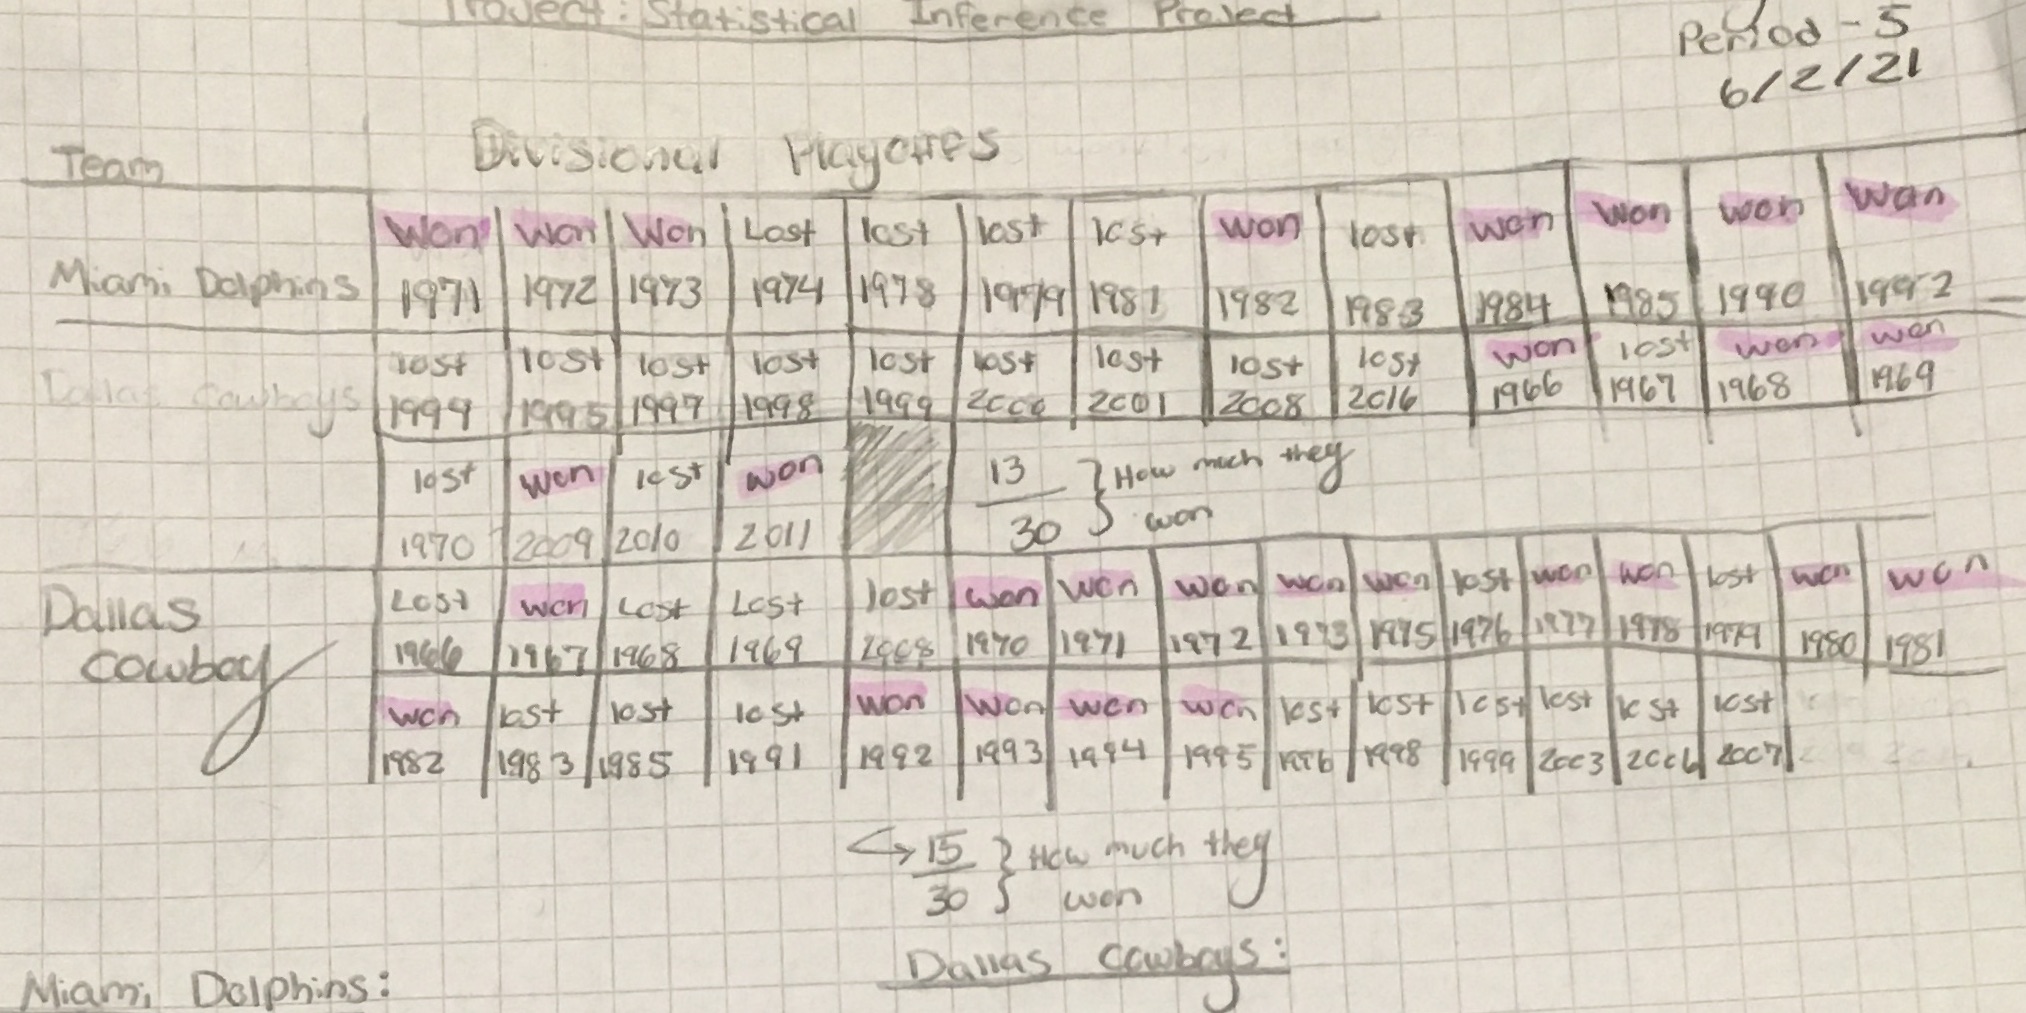 Project: Statistical Inference Project
Period - 5
6/2/21
Team Divisional Playoffs
Won Won Won Lost lost lost lost won lost won won won won
Miami Dolphins 1971 1972 1973 1974 1978 1979 1981 1982 1983 1984 1985 1990 1992
lost lost lost lost lost lost lost lost lost won lost won won
Dallas Cowboys 1999 1995 1997 1998 1999 2000 2001 2008 2016 1966 1967 1968 1969
lost won lost won 13 } How much they
1970 2009 2010 2011 30 won
Dallas Lost won Lost Lost lost won won won won won lost won won lost won won
Cowboy 1966 1967 1968 1969 2008 1970 1971 1972 1973 1975 1976 1977 1978 1979 1980 1981
won lost lost lost won won won won lost lost lost lost lost lost
1982 1983 1985 1991 1992 1993 1994 1995 1996 1998 1999 2003 2006 2007
15 } How much they
30 won
Dallas Cowboys:
Miami Dolphins: